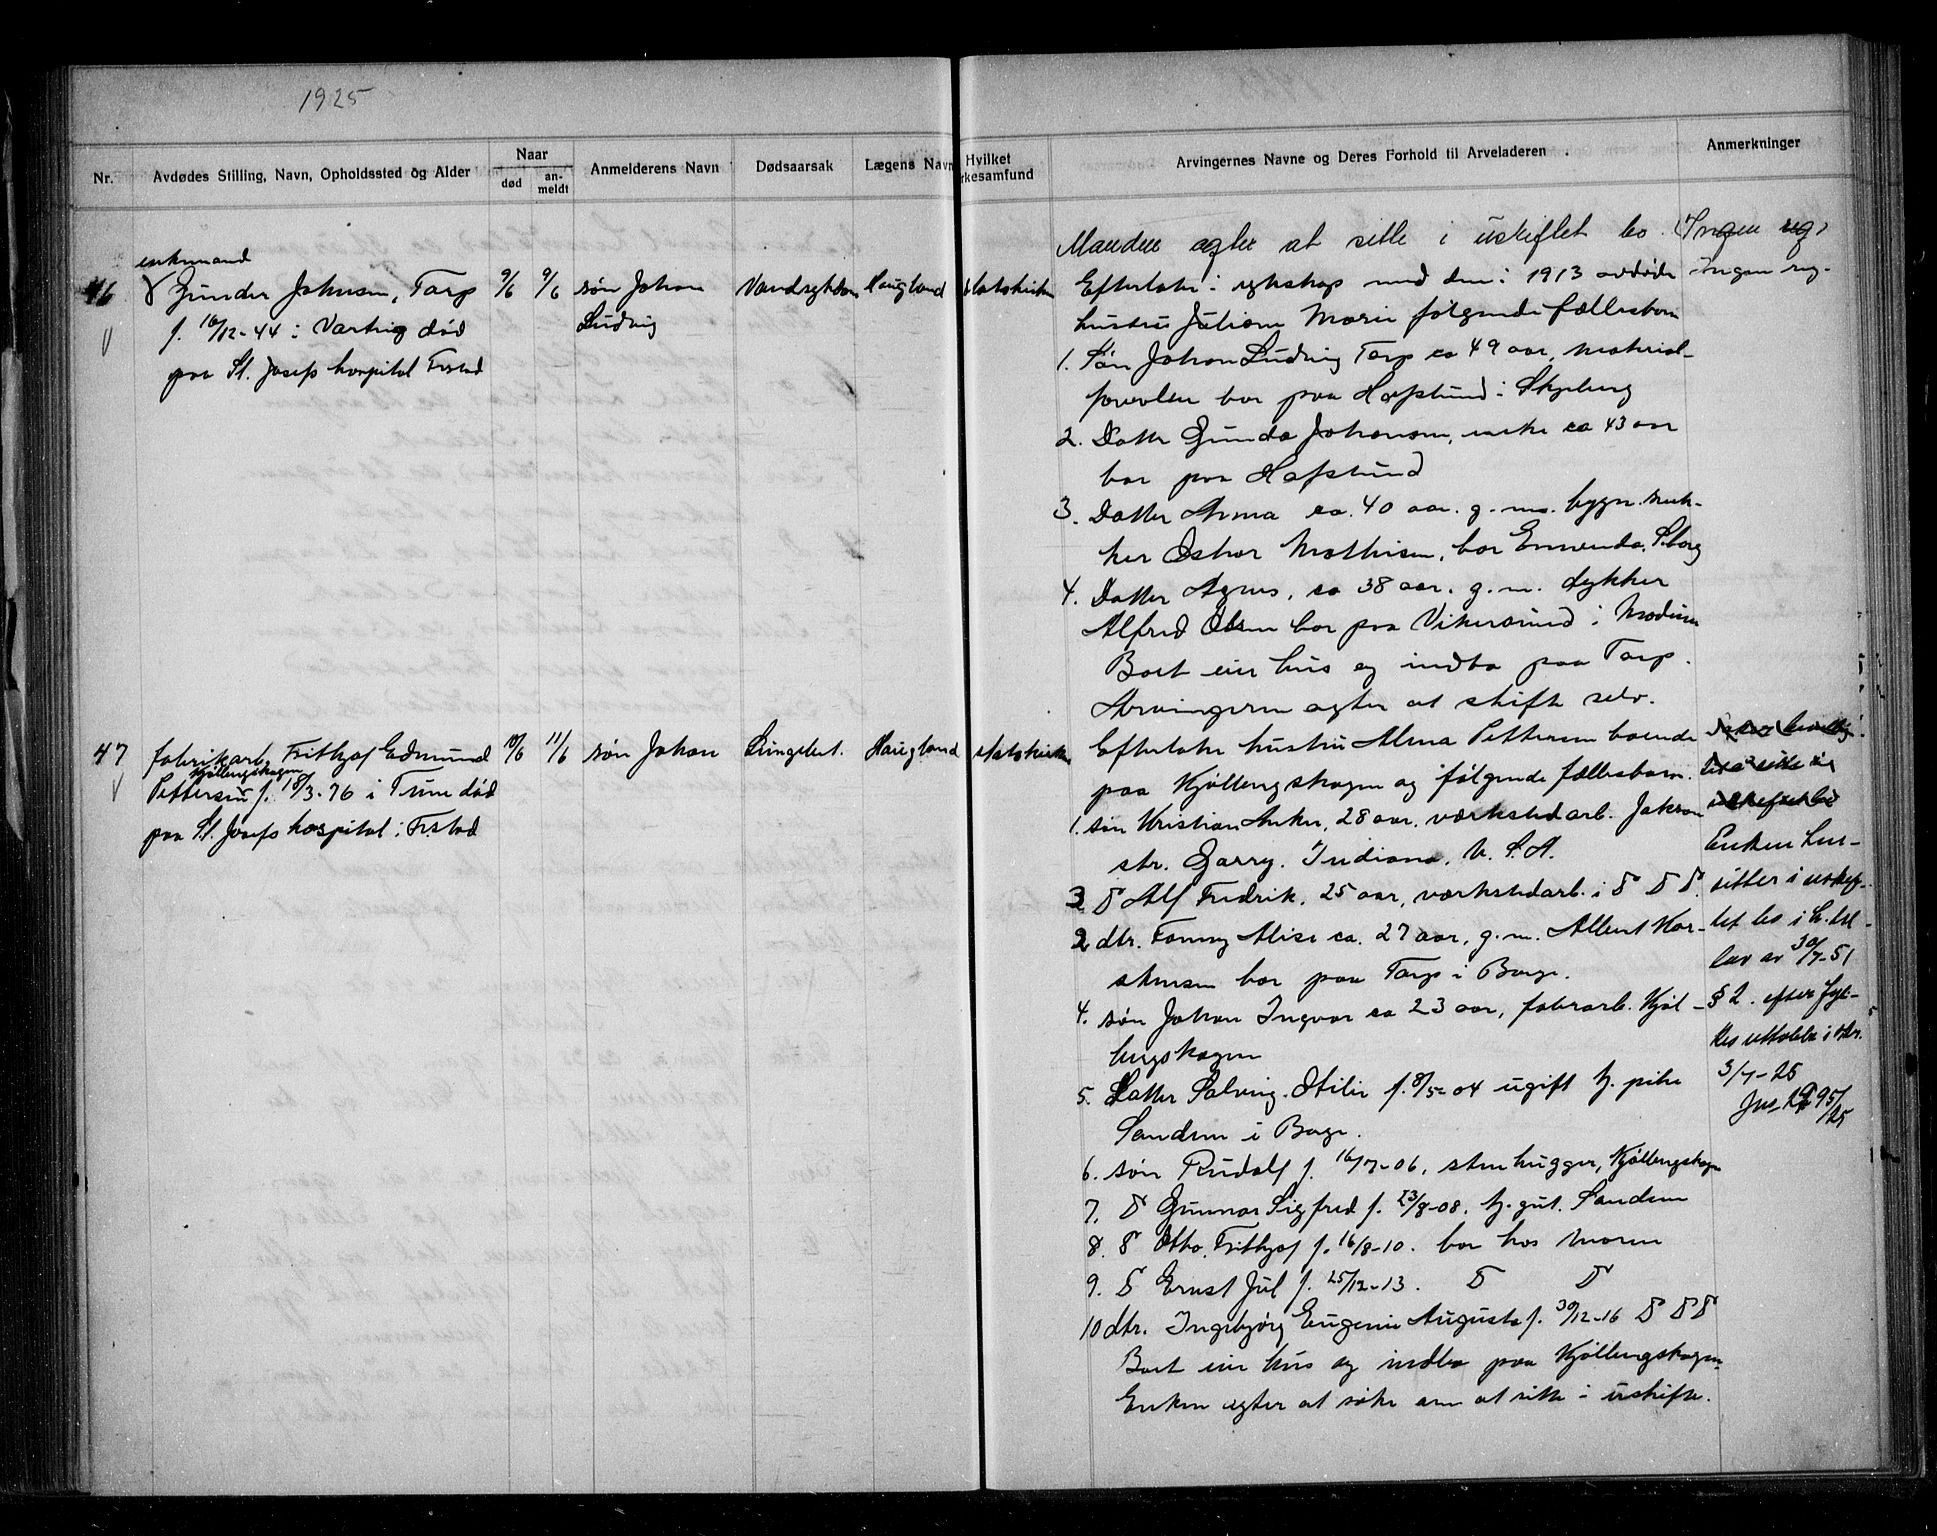 1925
Nr.
Avdødes Stilling, Navn, Opholdssted og Alder
Naar
død
an-
meldt
Anmelderens Navn
Dødsaarsak
Lægens Navn
Hvilket
rkesamfund
Arvingernes Navne og Deres Forhold til Arveladeren
Anmerkninger
Manden agter at sitte i uskiftet bo.
Ingen reg.
46
enkemand
Gunder Johnsen, Tarp
f. 16/12-44 i Varteig død
paa St. Josefs hospital Frstad
9/6
9/6
søn Johan
Ludvig
Haugland
statskirken
Efterlater i egteskap med den i 1913 avdøde
hustru Juliane Marie følgende fællesbarn
1. Søn Johan Ludvig Tarp ca 49 aar, material-
forvalter bor paa Hafslund i Skjeberg
2. Datter Gunda Johansen, enke ca 43 aar
bor paa Hafslund
3. Datter Anna ca. 40 aar. g. m. bygn. snek-
ker Oskar Mathisen, bor Enwenda, S.borg
4. Datter Agnes, ca 38 aar. g. m. dykker
Alfred Olsen bor paa Vikersund i Modum
Boet eier hus og indbo paa Tarp.
Arvingerne agter at skifte selv.
Ingen reg.
47
fabrikarb. Frithjof Edmund
Kjøllengskogen
Pettersen f. 18/3-76 i Tune død
paa St. Josefs hospital i Frstad
10/6
11/6
søn Johan
Lungebet.
Haugland
statskirken
Efterlater hustru Alma Pettersen boende
paa Kjøllengskogen og følgende fællesbarn.
1. søn Kristian Anker, 28 aar. værkstedarb. Jakson
str. Garry. Indiana, U. S. A.
3 " Alf Fredrik, 25 aar, værkstedarb. i " " "
2 dtr. Fanny Alise ca. 27 aar, g. m. Albert Kar-
bor paa Tarp i Borge.
4. søn Johan Ingvar ca 23 aar, fabrarb. Kjøl-
lengskogen
5. Datter Solveig Otilie f. 8/5-04 ugift tj. pike
Sandem i Borge.
6. søn Rudolf f. 16/7-06, stenhugger, Kjøllengskogen
7. " Gunnar Sigfred f. 23/8-08. tj. gut. Sandem
8. " Otto Frithjof f. 16/8-10. bor hos moren
9. " Ernst Jul f. 25/12-13. " "
10 dtr. Ingebjørg Eugenie Augusta f. 30/12-16 " " "
Boet eier hus og indbo paa Kjøllengskogen
Enken agter at søke om at sitte i uskifte.
Enken hen-
sitter i uskif-
tet bo i h. til
lov av 30/7-51
§ 2. efter fyl-
3/7-25